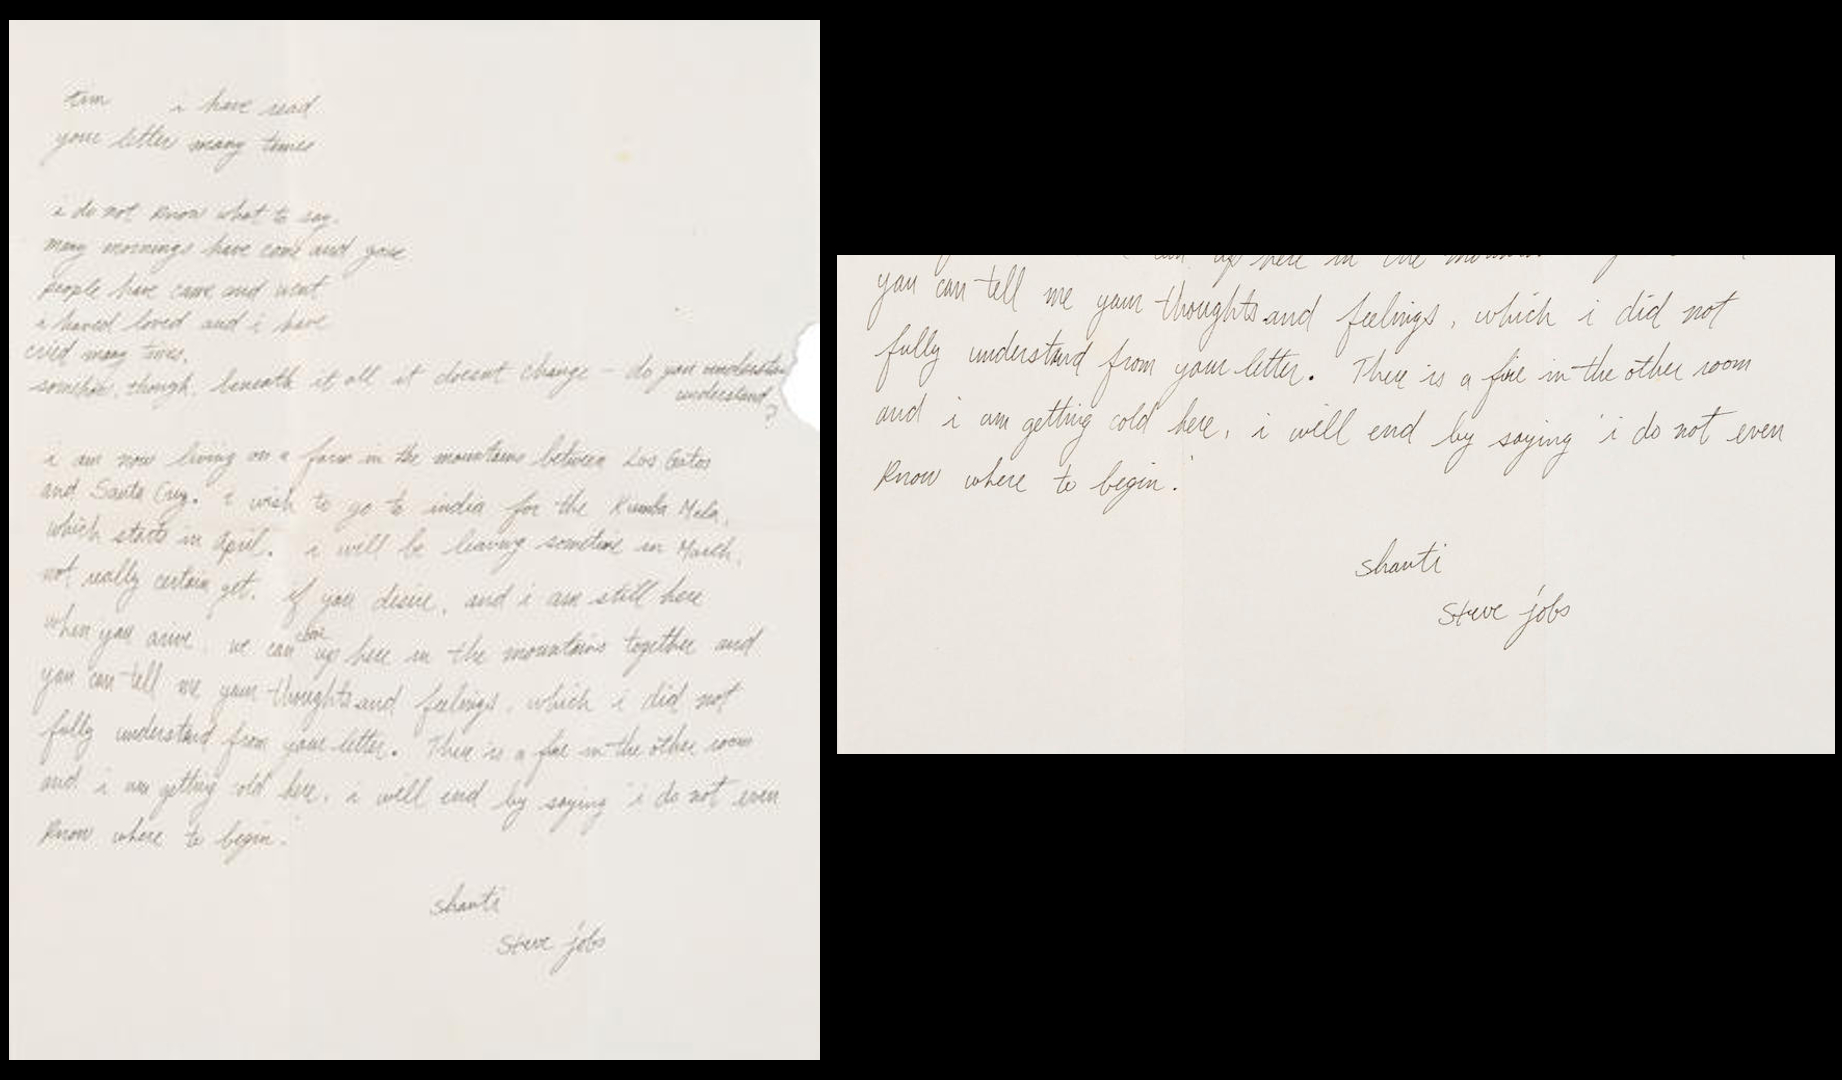 tim i have read
your letter many times
i do not know what to say.
many mornings have come and gone
people have came and went
i haved loved and i have
cried many times.
somehow, though, beneath it all it doesnt change - do you understan
understand
?
i am now living on a farm in the mountains between Los Gatos
and Santa Cruz. i wish to go to india for the Kumba Mela,
which starts in April. i will be leaving sometime in March,
not really certain yet. if you desire, and i am still here
when you arive, we can up here in the mountains together and
you can tell me your thoughts and feelings, which i did not
fully understand from your letter. There is a fire in the other room
and i am getting cold here, i will end by saying 'i do not even
know where to begin.'
shanti
steve jobs
up here in the
you can tell me your thoughts and feelings, which i did not
fully understand from your letter. There is a fire in the other room
and i am getting cold here, i will end by saying 'i do not even
know where to begin.'
shanti
steve jobs